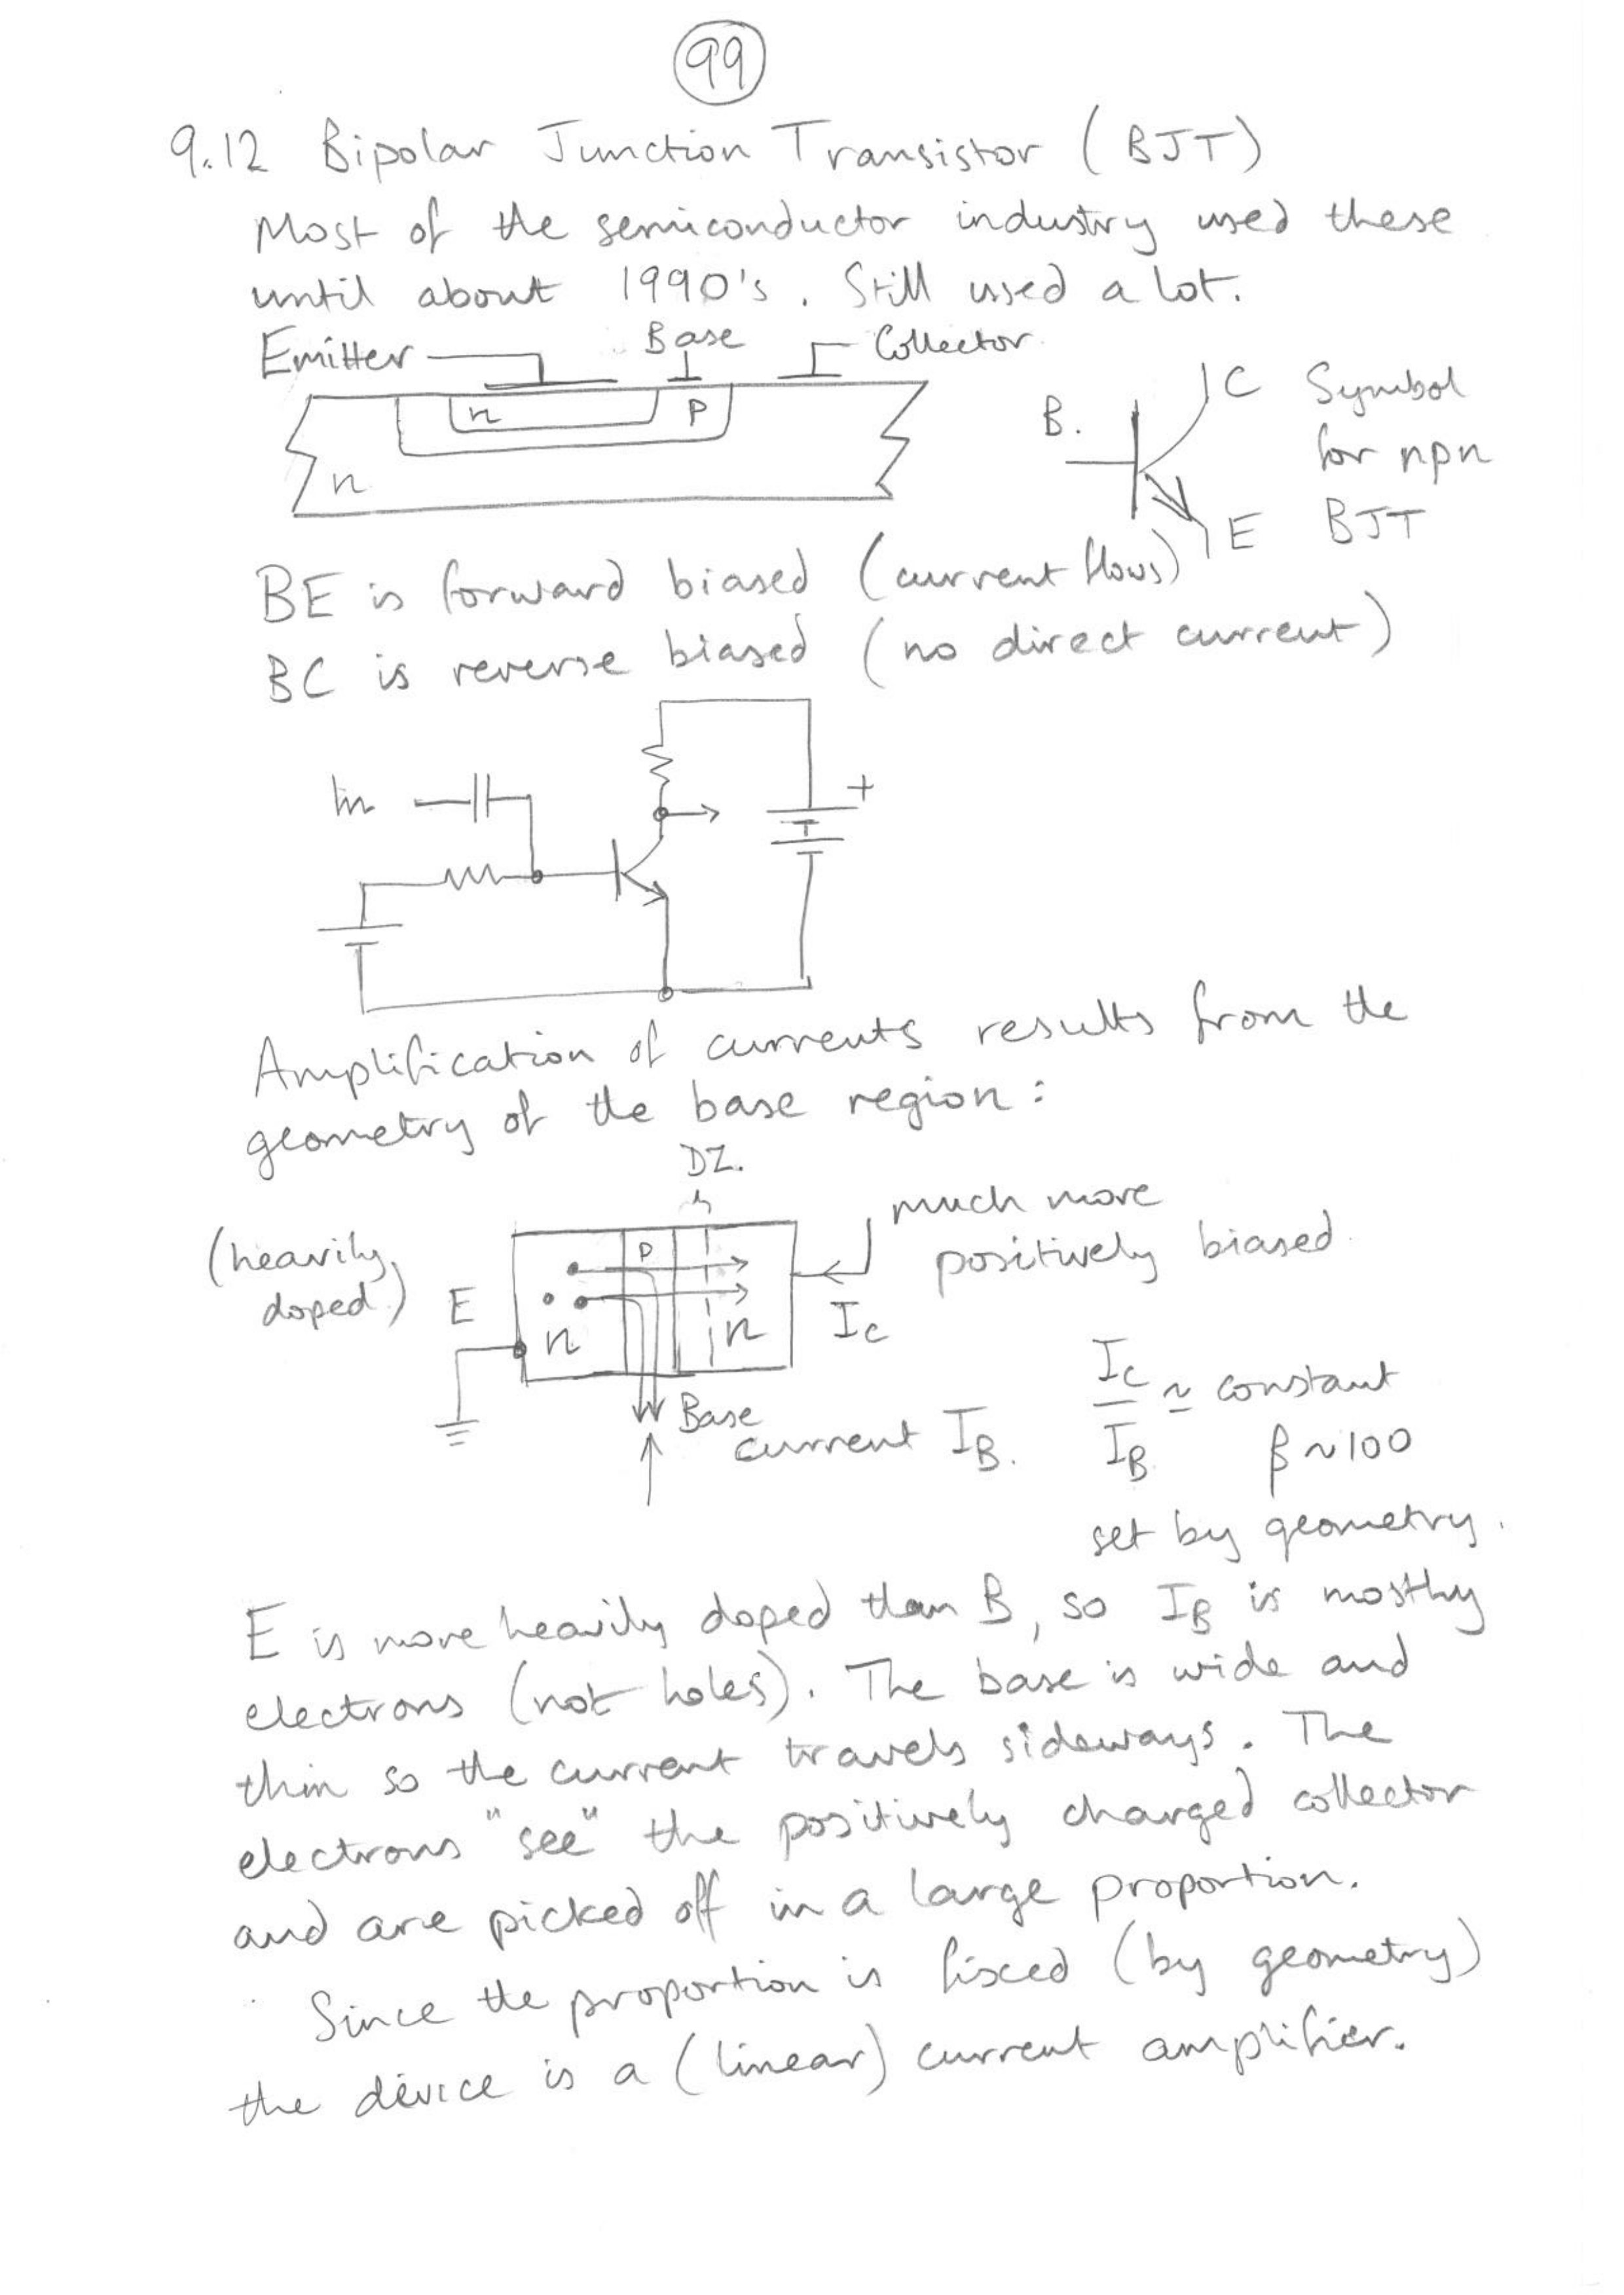 99
9.12 Bipolar Junction Transistor (BJT)
Most of the semiconductor industry used these
until about 1990's. Still used a lot.
Emitter Base Collector
n P
n
B. C E
Symbol
for npn
BJT
BE is forward biased (current flows)
BC is reverse biased (no direct current)
In
+
Amplification of currents results from the
geometry of the base region:
DZ.
much more
positively biased
(heavily
doped)
E
P
n n
Ic
Base
current IB.
Ic/IB ≃ constant
β ~ 100
set by geometry.
E is more heavily doped than B, so IB is mostly
electrons (not holes). The base is wide and
thin so the current travels sideways. The
electrons "see" the positively charged collector
and are picked off in a large proportion.
Since the proportion is fixed (by geometry)
the device is a (linear) current amplifier.